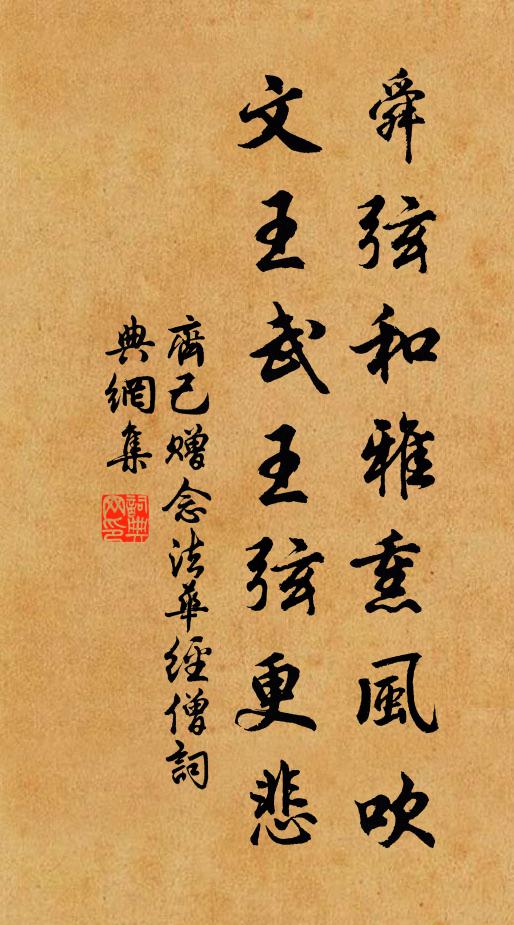 舜弦和雅熏風吹
文王武王弦更悲
齊己赠念法華經僧詞
典網集
詞典
網印